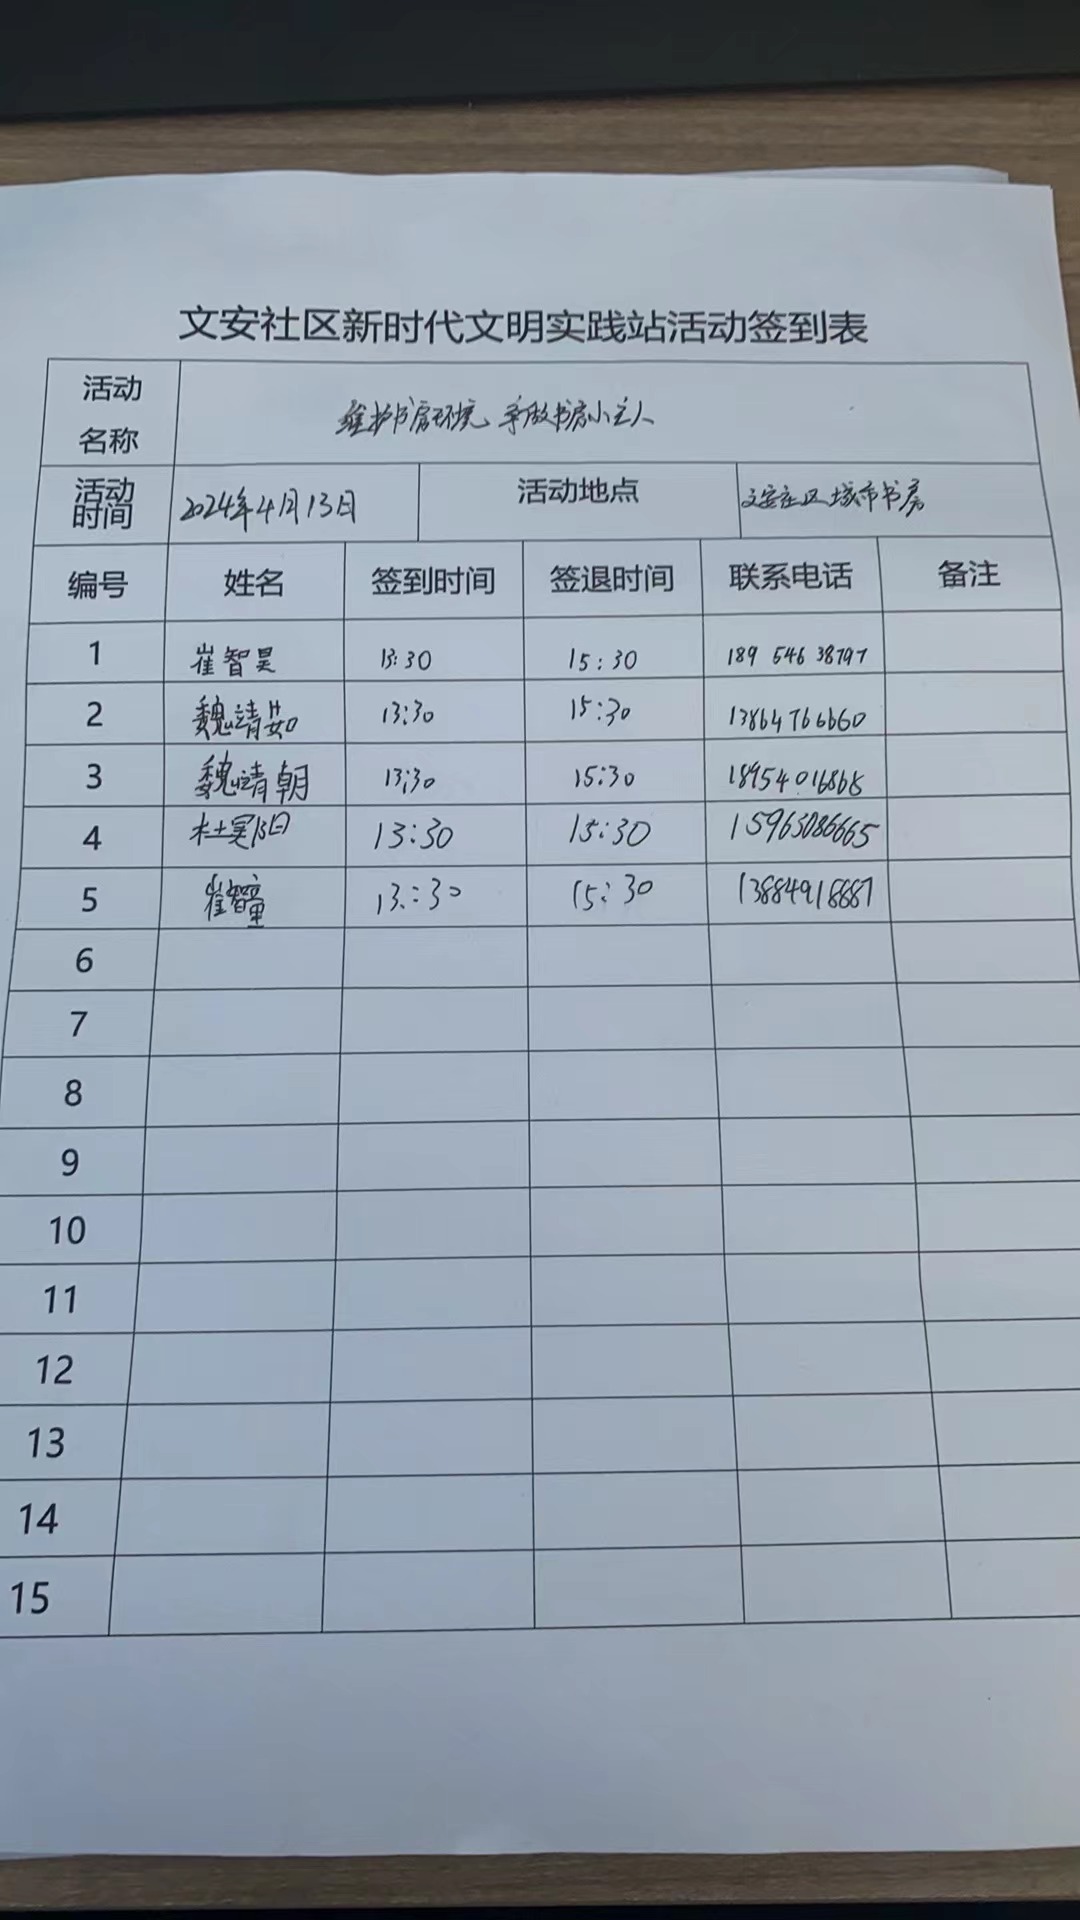 文安社区新时代文明实践站活动签到表
活动名称 维护书房环境，争做书房小主人
活动时间 2024年4月13日 活动地点 文安社区城市书房
编号 姓名 签到时间 签退时间 联系电话 备注
1 崔智昊 13:30 15:30 189 546 38797
2 魏靖茹 13:30 15:30 13864766660
3 魏靖朝 13:30 15:30 18954016868
4 杜昊阳 13:30 15:30 15963086665
5 崔智童 13:30 15:30 13884918887
6
7
8
9
10
11
12
13
14
15